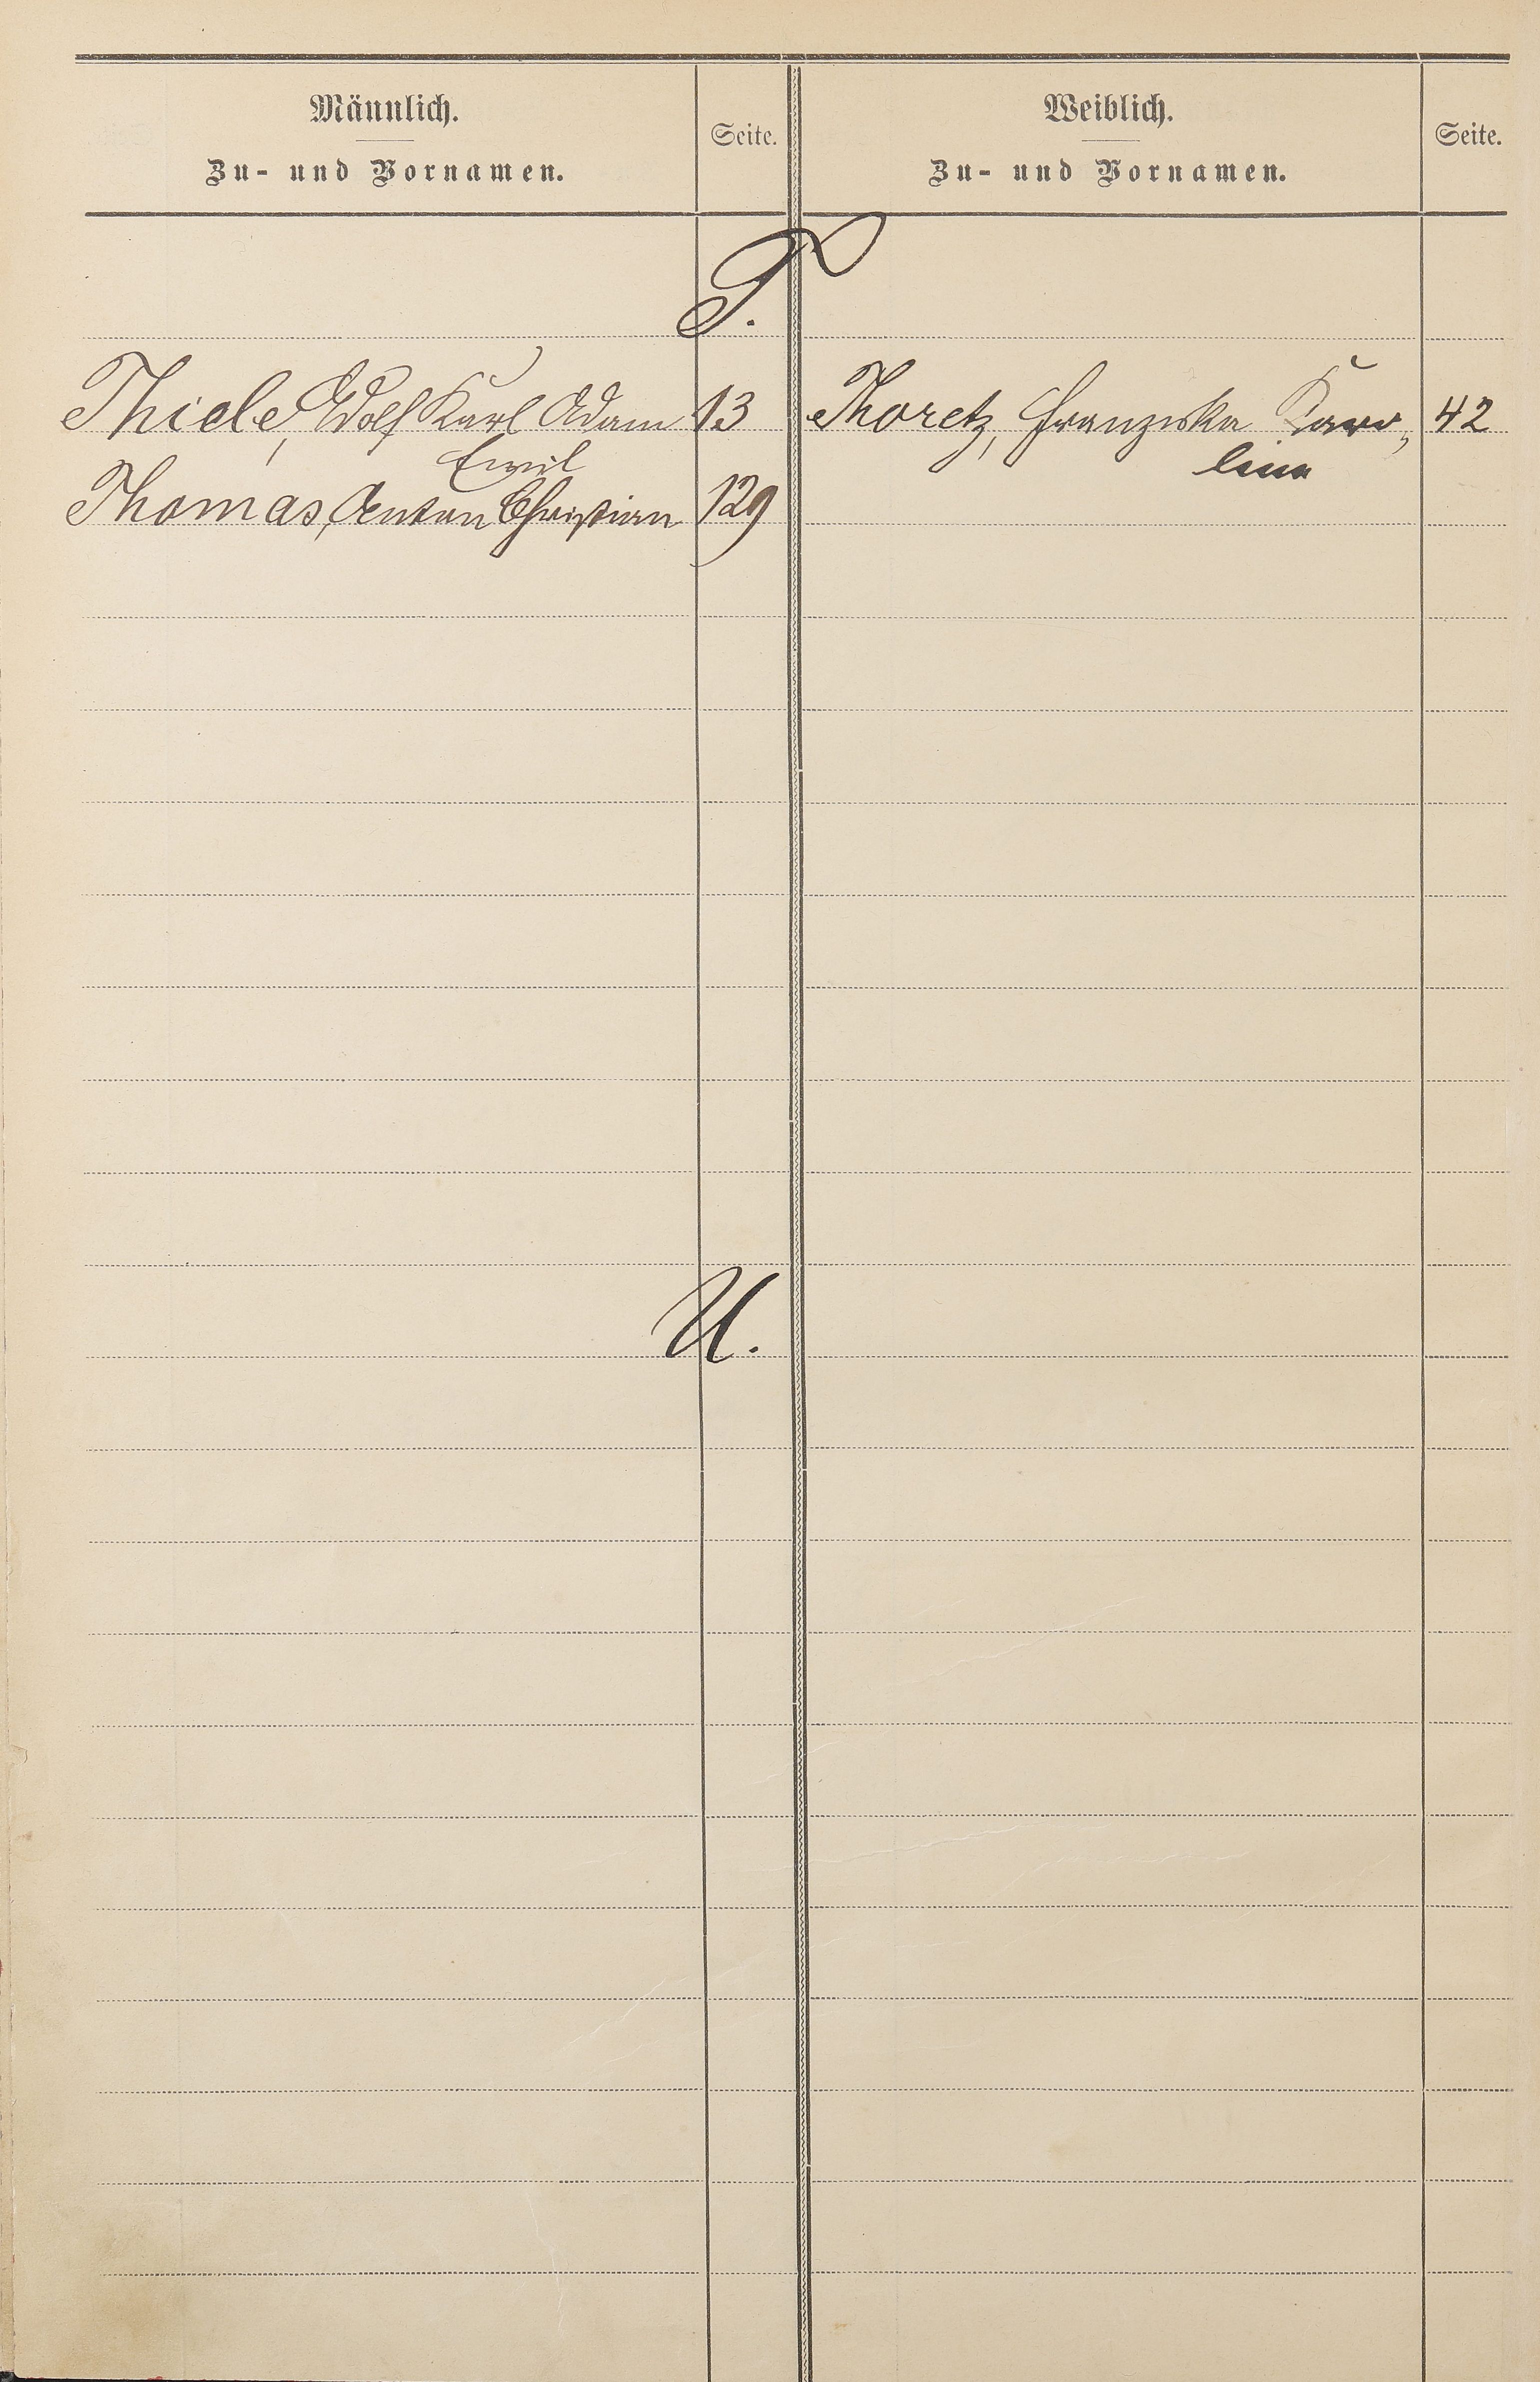 Männlich.
Zu- und Vornamen.
Seite.
Weiblich.
Zu- und Vornamen.
Seite.
T.
Thiele, Adolf Karl Adam 13
Emil
Thomas, Anton Christian 129
Thoretz, Franziska Karo„ 42
lina
U.